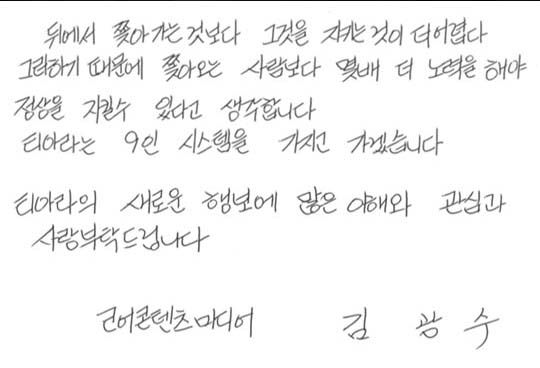 뒤에서 쫓아가는것보다 그것을 지키는것이 더어렵다
그러하기 때문에 쫓아오는 사람보다 몇배 더 노력을 해야
정상을 지킬수 있다고 생각합니다
티아라는 9인 시스템을 가지고 가겠습니다
티아라의 새로운 행보에 많은 이해와 관심과
사랑부탁드립니다
코어콘텐츠미디어 김 광 수